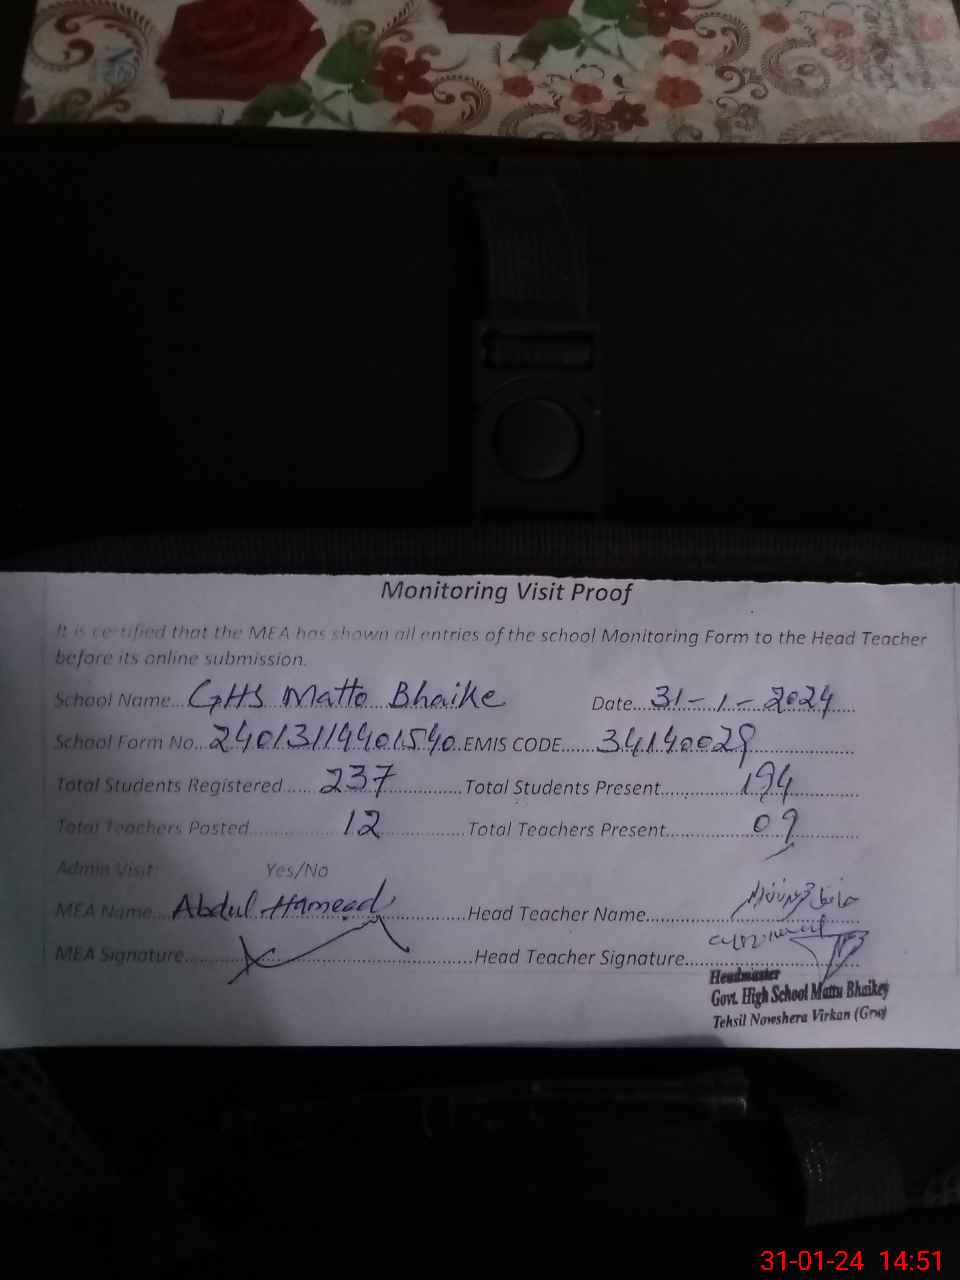 Monitoring Visit Proof
It is certified that the MEA has shown all entries of the school Monitoring Form to the Head Teacher
before its online submission.
School Name... GHS Matto Bhaike Date... 31-1-2024
School Form No... 24013119401540 EMIS CODE...... 34140029
Total Students Registered...... 237 Total Students Present...... 194
Total Teachers Posted...... 12 Total Teachers Present...... 09
Admin Visit: Yes/No
MEA Name... Abdul Hameed Head Teacher Name......
MEA Signature...... Head Teacher Signature......
Headmaster
Govt. High School Mattu Bhaikey
Tehsil Nowshera Virkan (Grw)
31-01-24 14:51